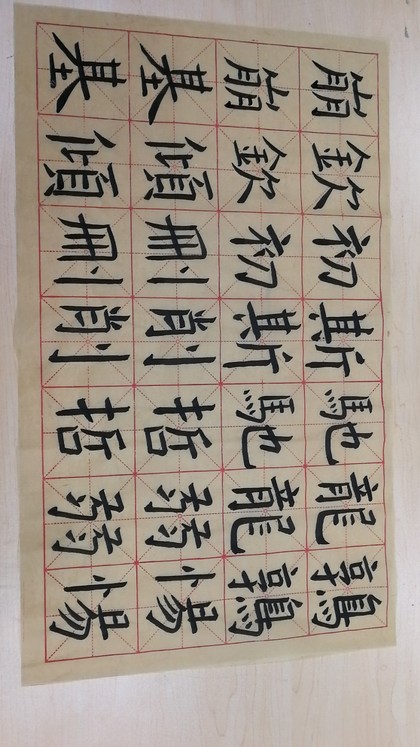 崩欽初斯馳龍鶉
崩欽初斯馳龍鶉
基傾刪削哲弱惕
基傾刪削哲弱惕